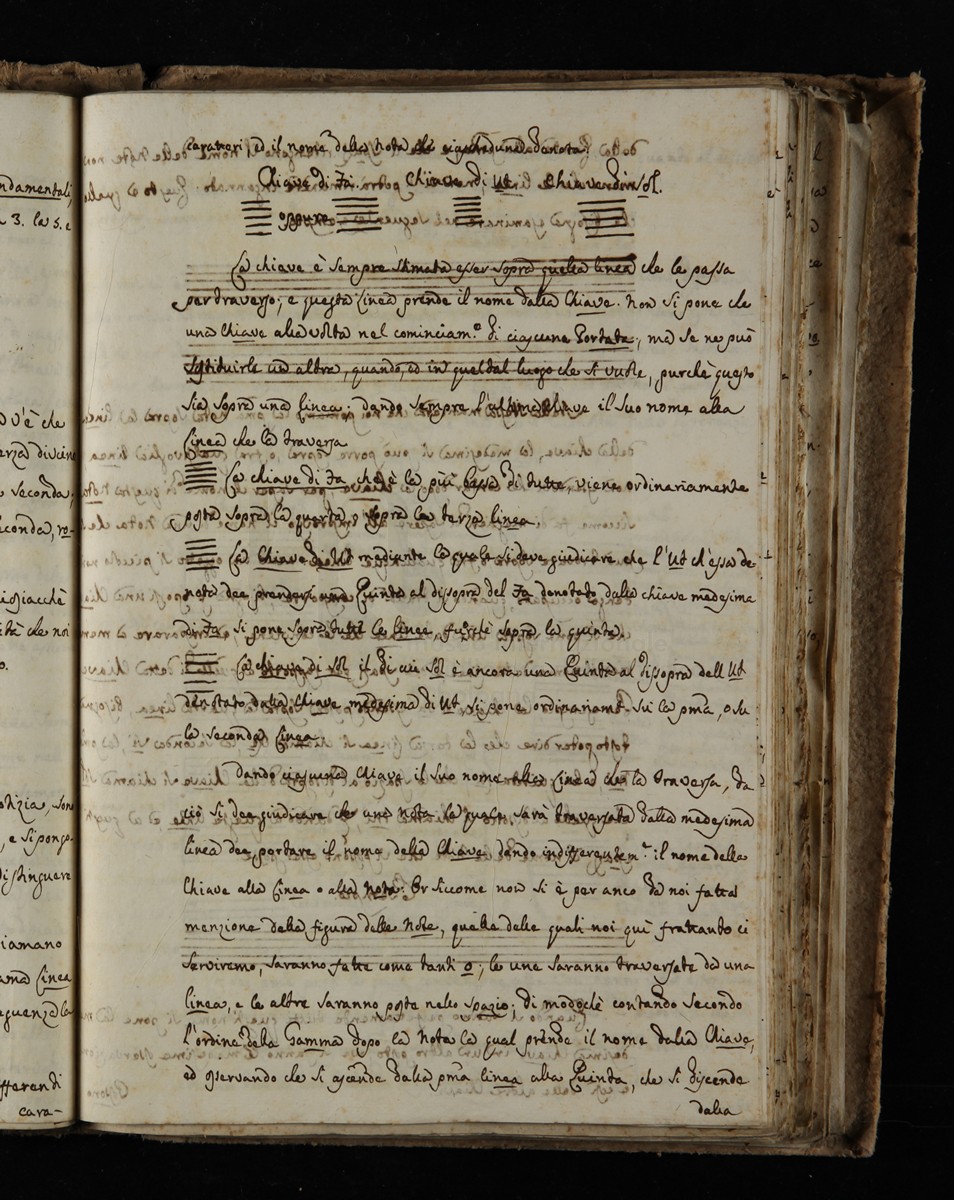 ndamentali,
3. la 5. e
v'è che
erza divien
seconda,
econda, ro-
giacchè
tà che noi
o.
otizia, son
, e si pongo-
distinguere
iamano
ama Linea
eguenza la
fferendi
cara-
caratteri, ed il nome della nota
Chiave di Fa. Chiave di Ut. Chiave di Sol.
oppure
La chiave è sempre stimata esser sopra quella linea che le passa
per traverso; e questa linea prende il nome dalla Chiave. Non si pone che
una Chiave alla volta nel cominciam.º di ciascuna Portata; ma se ne può
sostituirle un altra, quando, ed in qual tal luogo che si vuole, purchè questo
sia sopra una linea; dando sempre l'ultima Chiave il suo nome alla
linea che la traversa
La chiave di Fa, che è la più bassa di tutte, viene ordinariamente
posta sopra la quarta, o sopra la terza linea.
La Chiave di Ut mediante la quale si deve giudicare che l'Ut ch'essa de-
nota dee prendersi una Quinta al disopra del Fa denotato dalla chiave medesima
di Fa, si pone sopra tutte le linee, fuorchè sopra la quinta.
La chiave di Sol il di cui Sol è ancora una Quinta al disopra dell Ut
denotato dalla Chiave medesima di Ut, si pone ordinariamt. su la pma, o su
la seconda linea.
Dando ciascuna Chiave il suo nome alla linea che la traversa, da
ciò si dee giudicare che una Nota la quale sarà traversata dalla medesima
linea dee portare il nome della Chiave, dando indifferentem.e il nome della
Chiave alla linea o alla Nota: Or siccome non si è per anco da noi fatta
menzione della figura delle Note, quelle delle quali noi quì frattanto ci
serviremo, saranno fatte come tanti o; le une saranno traversate da una
linea, e le altre saranno poste nello spazio; di modochè contando secondo
l'ordine della Gamma dopo la Nota la qual prende il nome dalla Chiave,
ed osservando che si ascende dalla pma linea alla Quinta, che si discende
dalla